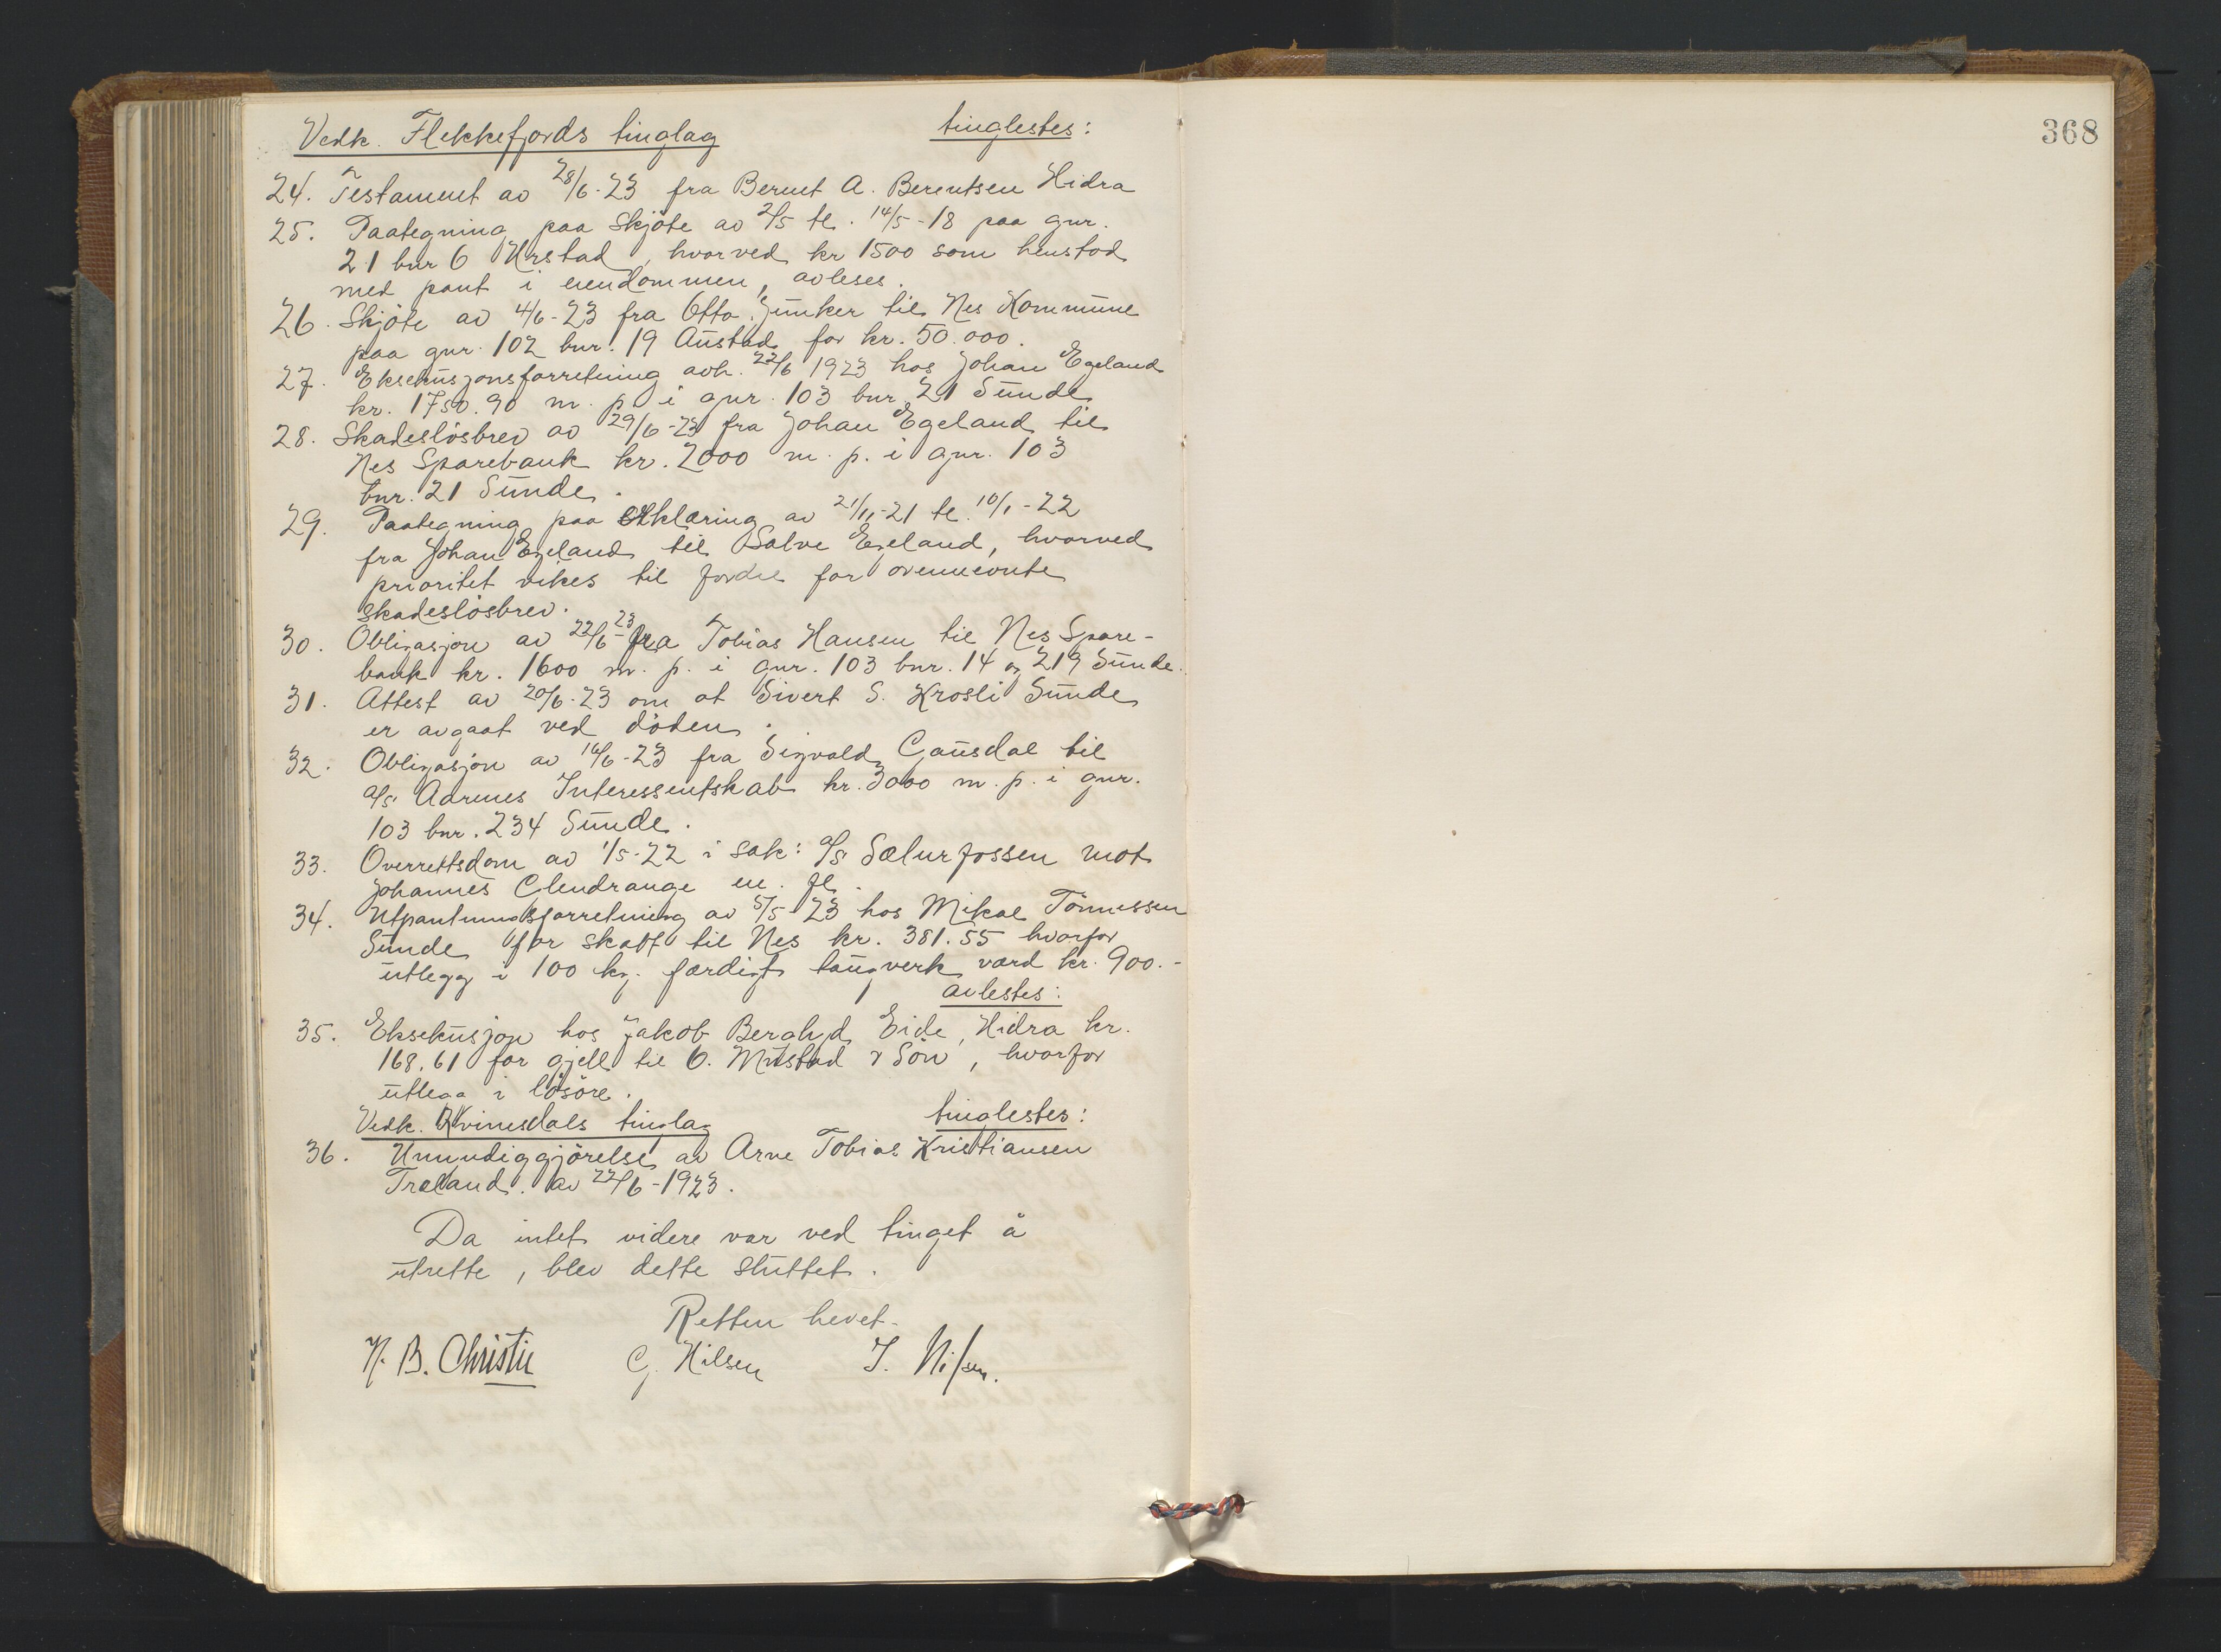 Vedk. Flekkefjords tinglag tinglestes:
24. Testament av 28/6-23 fra Bernt A. Berentsen Hidra
25. Paategning paa skjöte av 2/5 tl. 14/5-18 paa gnr.
21 bnr 6 Urstad, hvorved kr 1500 som henstod
med pant i eiendommen, avleses.
26. Skjöte av 4/6-23 fra Otto Junker til Nes Kommune
paa gnr. 102 bnr. 19 Austad for kr. 50.000.
27. Eksekusjonsforretning avh. 22/6 1923 hos Johan Egeland
kr. 1750.90 m. p. i gnr. 103 bnr 21 Sunde
28. Skadeslösbrev av 29/6-23 fra Johan Egeland til
Nes Sparebank kr. 2000 m. p. i gnr. 103
bnr. 21 Sunde.
29. Paategning paa erklæring av 21/11-21 tl. 10/1-22
fra Johan Egeland til Salve Egeland, hvorved
prioritet vikes til fordel for ovennevnte
skadeslösbrev.
30. Obligasjon av 22/6-23 fra Tobias Hansen til Nes Spare-
bank kr. 1600 m. p. i gnr. 103 bnr. 14 og 219 Sunde.
31. Attest av 20/6-23 om at Sivert S. Krosli Sunde
er avgaat ved döden.
32. Obligasjon av 16/6-23 fra Sigvald Gausdal til
a/s Aarenes Interessentskab kr. 3000 m. p. i gnr.
103 bnr. 234 Sunde.
33. Overrettsdom av 1/5-22 i sak: a/s Sælurfossen mot
Johannes Glendrange m. fl.
34. Utpantningsforretning av 5/5-23 hos Mikal Tönnessen
Sunde for skatt til Nes kr. 381.55 hvorfor
utlegg i 100 kg. færdigt taugverk værd kr. 900.-
avlestes:
35. Eksekusjon hos Jakob Eide, Hidra kr.
168.61 for gjell til O. Mustad & Sön, hvorfor
utlegg i lösöre.
Vedk. Kvinesdals tinglag tinglestes:
36. Umyndiggjörelse av Arne Tobias Kristiansen
Træland. av 22/6-1923.
Da intet videre var ved tinget å
utrette, blev dette sluttet.
Retten hevet.
H. B. Christie G. Nilsen J. Nilsen.
368